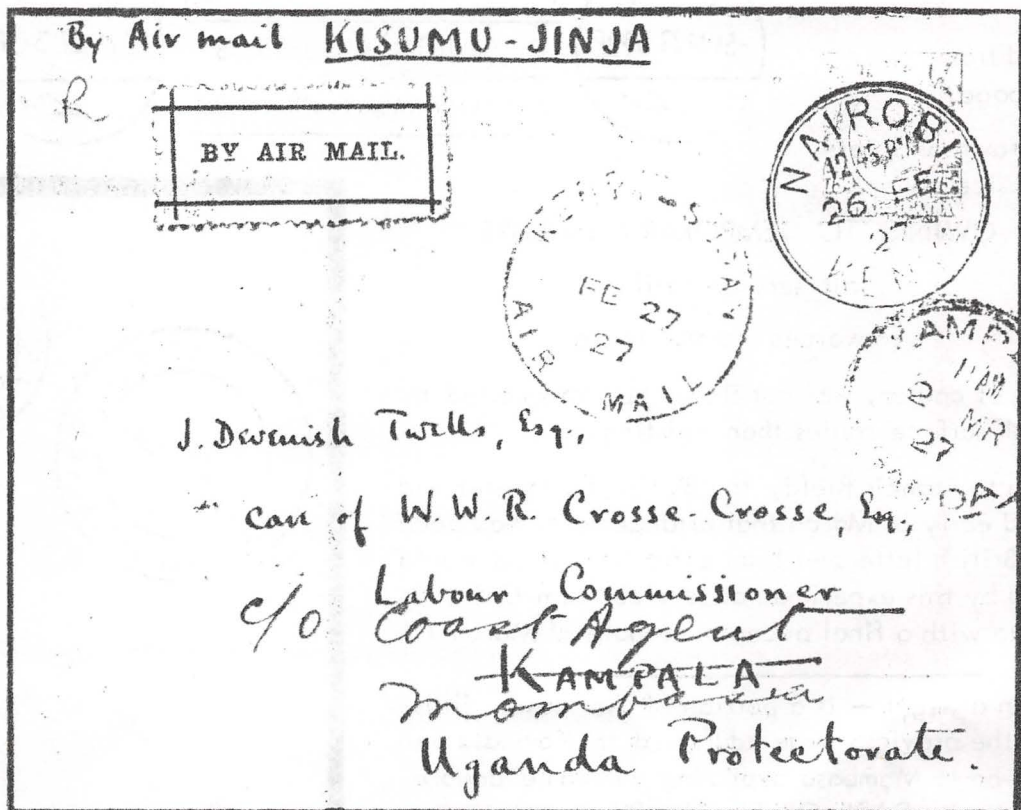 By Air mail KISUMU-JINJA
R
BY AIR MAIL.
NAIROBI
12 45 PM
26 FE
2
KEN
KENYA-SUDAN
FE 27
27
AIR MAIL
KAMP
11 AM
2 MR
27
J. Devenish Twells, Esq.,
care of W.W.R. Crosse-Crosse, Esq.,
Labour Commissioner
c/o Coast Agent
KAMPALA
Mombasa
Uganda Protectorate.